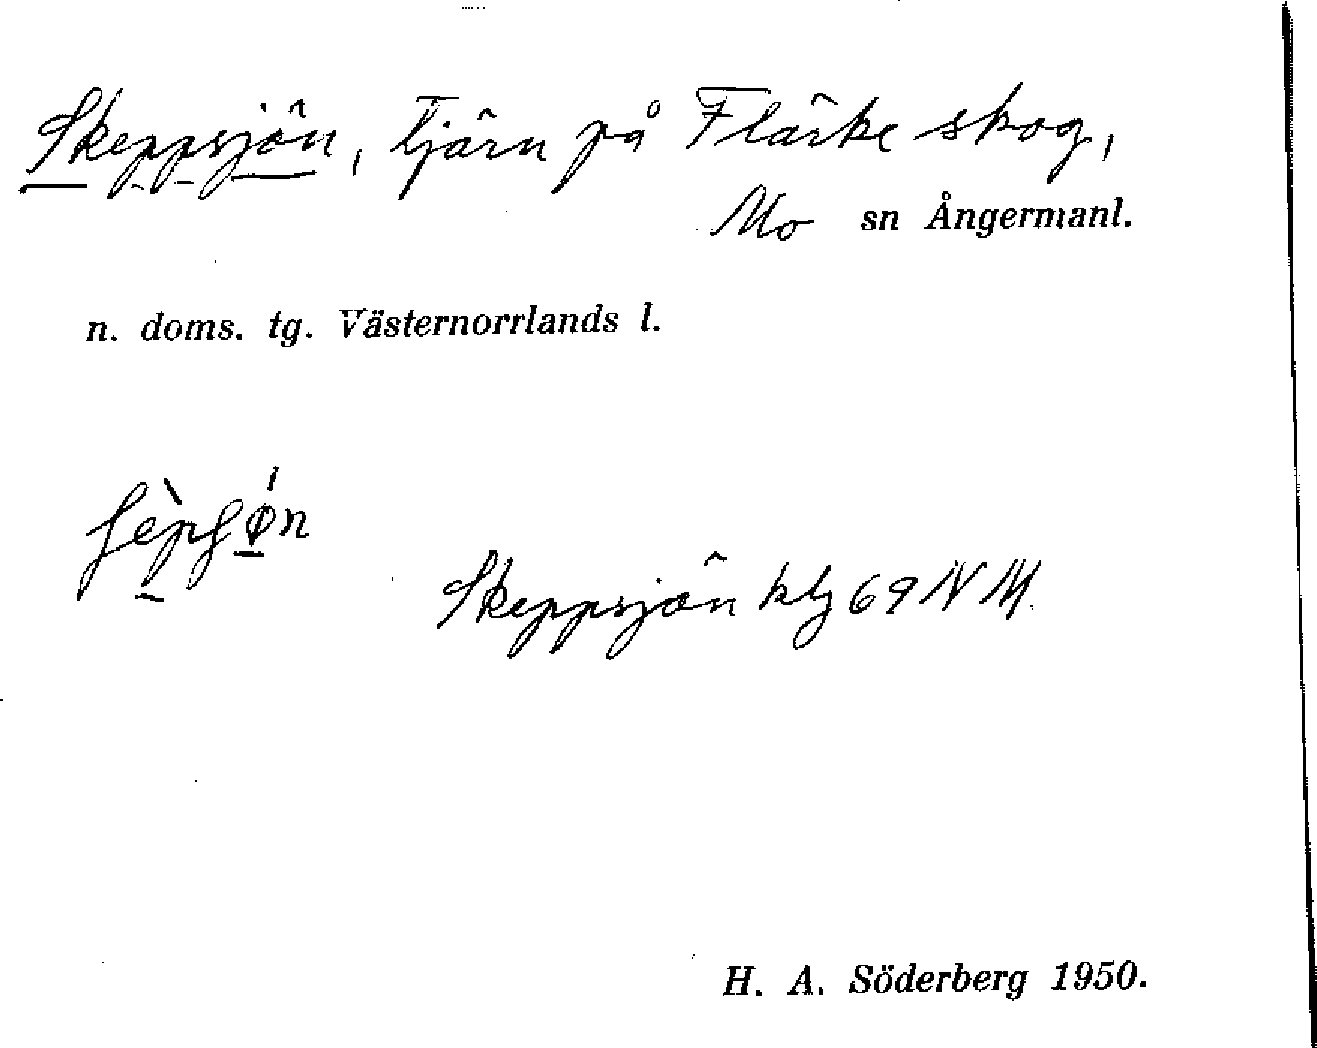 Skeppsjön, Tjärn på Flärke skog,
Mo sn Ångermanl.
n. doms. tg. Västernorrlands l.
Skeppsjön kbl 69 NM.
H. A. Söderberg 1950.